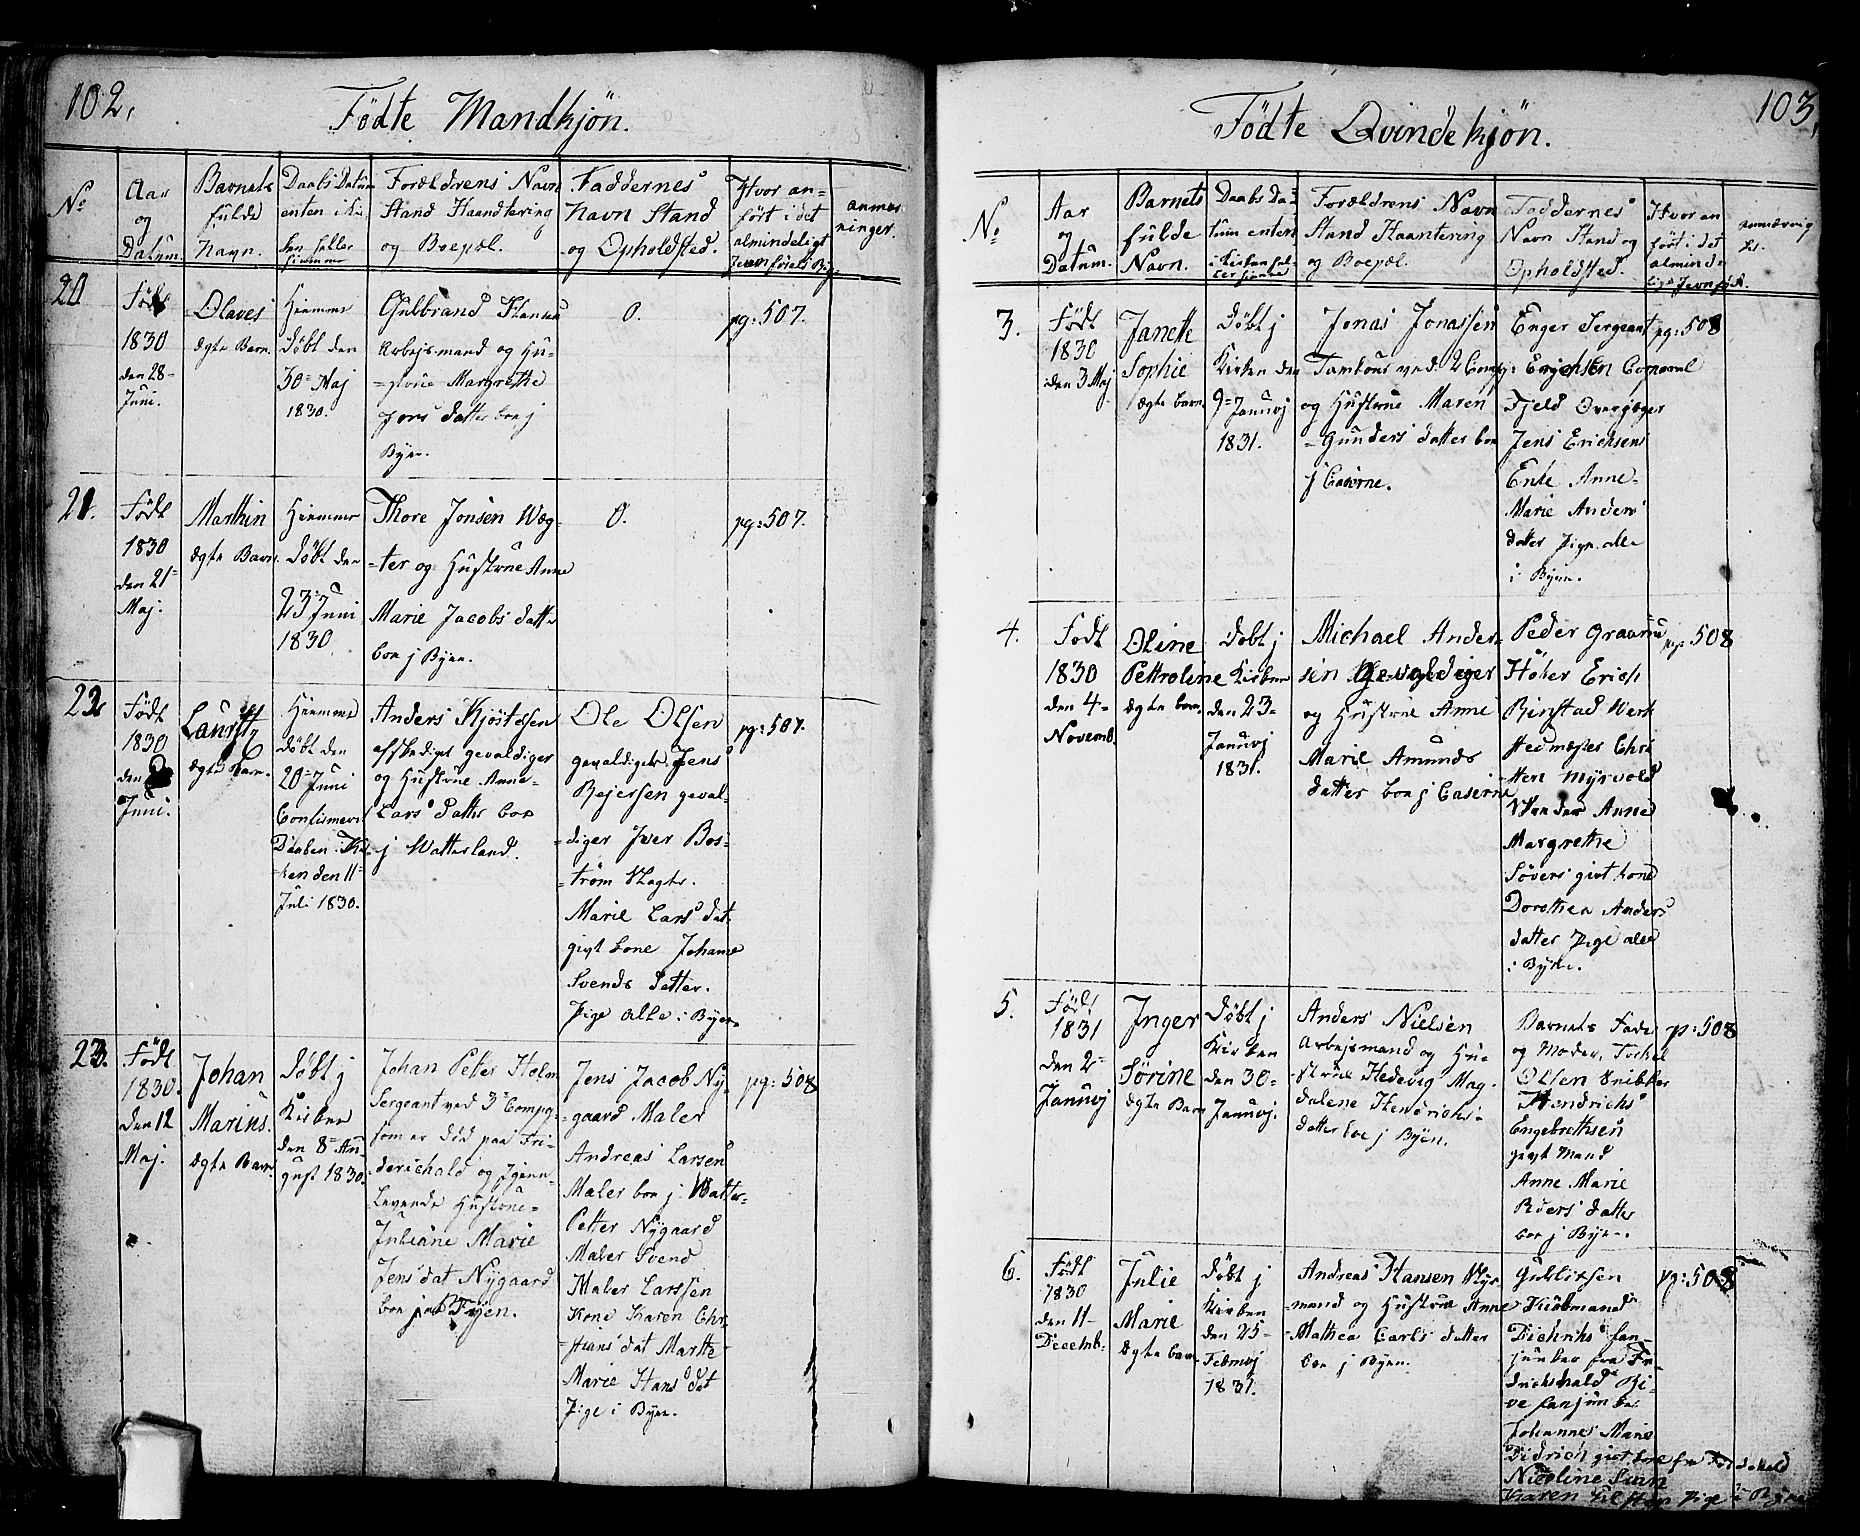 102.
Fødte Mandkjøn.
No
Aar
og
Datum.
Barnets
fulde
Navn.
Daabs Datum
enten i Kir
ken heller
hiemme
Forældrens Navn
Stand Haandtering
og Boepæl.
Faddernes
Navn Stand
og Opholdsted.
Hvor an=
ført i det
almindeligt
Jevnførels Rig.
anmer
ninger.
20
Født
1830
den 28=
Juni.
Olaves
ægte Barn.
Hiemme
døbt den
30= Maj
1830.
Gulbrand Hansen
Arbejsmand og Hu=
=strue Margrethe
Jons datter boe j
Byen.
0.
pg: 507.
21.
Født
1830
den 21=
Maj.
Marthin
ægte Barn.
Hiemme
døbt den
23= Juni
1830
Thore Jonsen Væg=
=ter og Hustrue Anne
Marie Jacobs datte
boe j Byen.
0.
pg: 507.
22
Født
1830
den
Juni.
Lauritz
ægte Barn.
Hiemme
døbt den
20= Juni
Daaben i Kir
ken den 11=
Juli 1830.
Anders Kjøstelsen
afskediget gevaldiger
og Hustrue Anne=
Lars datter boe
j Watterland.
Ole Olsen
gevaldiger Jens
Bejersen geval=
=diger Jver Bos=
=trøm Slagter.
Marie Lars dat
givt kone Johane
Svends datter.
Pige alle i Byen
pg: 507.
23.
Født
1830.
den 12
Maj.
Johan
Marius.
ægte Barn
døbt j
Kirken
den 8= Au=
gust 1830.
Johan Petter Holm
Sergeant ved 3 Compg.
som er død paa Fri=
=derichald og Igien=
=levende Hustrue=
Juliane Marie
Jens dat Nygaard
boe j Byen.
Jens Jacob Ny=
=gaard Maler
Andreas Larsen
Maler boe j Watter=
Petter Nygaard
Maler Svend
Maler Larssen
Kone Karen Chr
=stians dat Marthe
Marie Hans dat
Pige i Byen.
pg: 508
103.
Fødte Qvindekjøn.
No
Aar
og
Datum.
Barnets
fulde
Navn.
Daabs Da=
tum enten
i Kirken hel=
ler hieme
Forældrens Navn
Stand Haantering
og Boepæl.
Faddernes
Navn Stand og
Opholdsted.
Hvor an
ført i det
alminde
lige Jevnfør.
3.
Født
1830
den 3 Maj
Janette
Sophie
ægte barn
døbt j
Kirken den
9= Januvj
1831.
Jonas Jonassen
Tambour ved 2 Comp:
og Hustrue Maren
=Gunders datter boe
j Caserne.
Enger Sergeant
Erichsen Corporal
Fjeld Overjæger
Jens Erichsens
Enke Anne=
Marie Anders
datter Pige alle
i Byen.
pg: 508
4.
Født
1830
den 4=
Novemb.
Oline
Pettroline
ægte barn
døbt j
Kirken
den 23=
Januvj
1831.
Michael Ander=
sen Gevaldiger
og Hustrue Anne
Marie Amunds
datter boe j Caserne
Peder Graarud
Høker Erich
Rinstad Werk
stedmæster Chri
sten Myrvold
Anne
Margrethe
Søvers givt kone
Dorothea Anders
datter Pige alle
i Byen.
pg: 508
5.
Født
1831
den 2=
Januvj
Inger
Sørine
ægte Barn
døbt j
Kirken
den 30=
Januvj.
Anders Nielsen
Arbejsmand og Hu=
strue Hedevig Mag=
dalene Hendrichs=
datter boe j Byen.
Barnets Fade
og Moder, Torkel
Olsen Snikker
Hendrichs
Engebrethsen
givt Mand
Anne Marie
datter
boe j Byen.
p: 508
6.
Født
1830
den 11=
Decemb:
Julie
Marie
ægte barn
døbt j
Kirken
den 25=
Febuvj
1831.
Andreas Hansen Styr
=mand og Hustrue Anne
=Mathea Carls datter
boe j Byen.
Gulliksen
Kiøbmand
Diderichs fan=
junker fra Fr=
drichshald
ve fanjunker
Johannes Marie
Didrich givt kone fra
Nicoline
Karen Pige i Byen
pg: 508